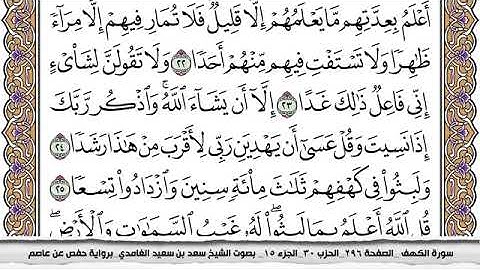 أَعْلَمُ بِعِدَّتِهِم مَّا يَعْلَمُهُمْ إِلَّا قَلِيلٌ فَلَا تُمَارِ فِيهِمْ إِلَّا مِرَآءً
ظَٰهِرًا وَلَا تَسْتَفْتِ فِيهِم مِّنْهُمْ أَحَدًا ٢٢ وَلَا تَقُولَنَّ لِشَاْىْءٍ
إِنِّى فَاعِلٌ ذَٰلِكَ غَدًا ٢٣ إِلَّآ أَن يَشَآءَ ٱللَّهُ وَٱذْكُر رَّبَّكَ
إِذَا نَسِيتَ وَقُلْ عَسَىٰٓ أَن يَهْدِيَنِ رَبِّى لِأَقْرَبَ مِنْ هَٰذَا رَشَدًا ٢٤
وَلَبِثُوا۟ فِى كَهْفِهِمْ ثَلَٰثَ مِا۟ئَةٍ سِنِينَ وَٱزْدَادُوا۟ تِسْعًا ٢٥
قُلِ ٱللَّهُ أَعْلَمُ بِمَا لَبِثُوا۟ ۖ لَهُۥ غَيْبُ ٱلسَّمَٰوَٰتِ وَٱلْأَرْضِ ۖ
سورة الكهف _الصفحة ٢٩٦_الحزب ٣٠_الجزء ١٥_ بصوت الشيخ سعد بن سعيد الغامدي_برواية حفص عن عاصم